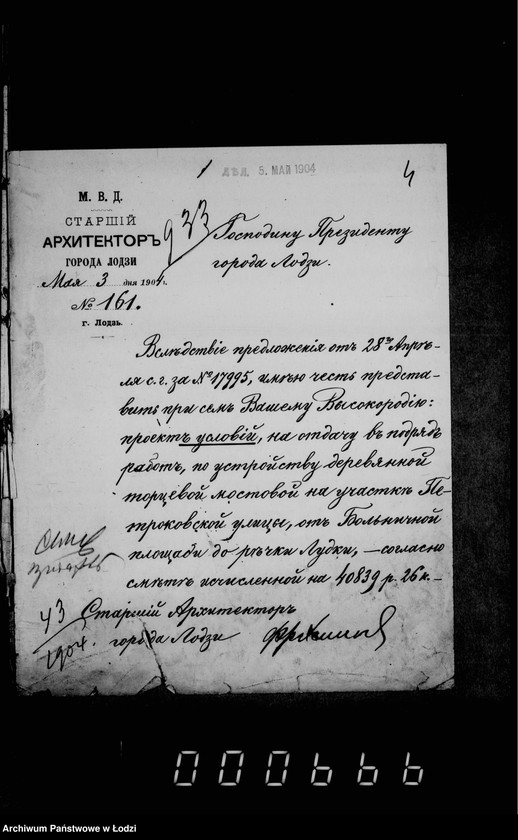 1
ДѢЛ. 5. МАЙ 1904
4
М. В. Д.
СТАРШІЙ
АРХИТЕКТОРЪ
ГОРОДА ЛОДЗИ
Мая 3 дня 1904 г.
№ 161.
г. Лодзь.
933
Господину Президенту
города Лодзи.
Вслѣдствіе предложенія отъ 28го Апрѣ-
ля с. г. за № 17995, имѣю честь предста-
вить при семъ Вашему Высокородію:
проектъ условій, на отдачу въ подрядъ
работъ, по устройству деревянной
торцевой мостовой на участкѣ Пе-
троковской улицы, отъ Больничной
площади до рѣчки Лудки, — согласно
смѣтѣ исчисленной на 40839 р. 26 к. —
Старшій Архитекторъ
города Лодзи
43
1904.
000666
Archiwum Państwowe w Łodzi